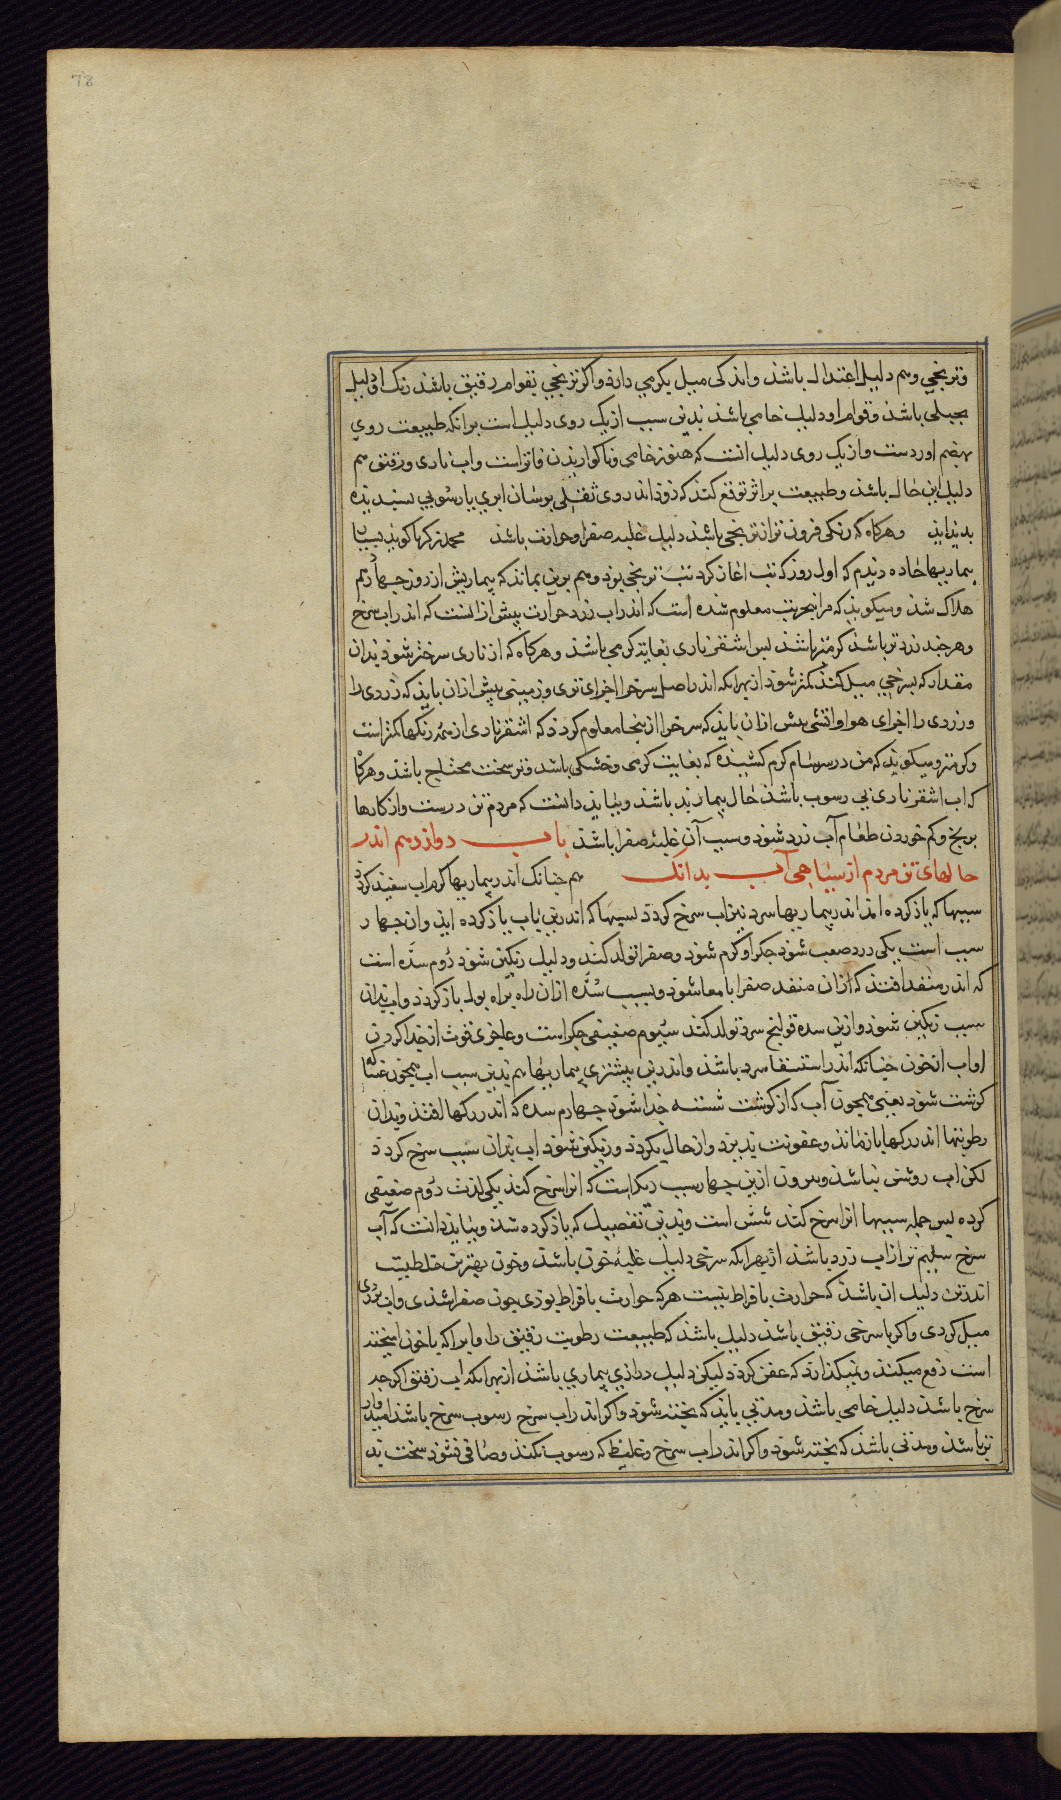 78
وترنجی وهم دلیل اعتدال باشذ واندکی میل بکرمی دارد واکر ترنجی بقوام رقیق باشذ رنک او دلیل
باشذ وقوام او دلیل خامی باشذ بدین سبب از یک روی دلیل است برانکه طبیعت روی
بهضم اوردست واز یک روی دلیل انست که هنوز خامی وناکواریذن فاتر است واب ناری ورقیق هم
دلیل این حال باشذ وطبیعت براثر توقع کنذ که زود اندروی ثفلی برسان ابری یا رسوبی سپیدبذه
بدید ایذ وهرکاه که رنکی فزون تر از ترنجی باشذ دلیل غلبه صفرا وحرارت باشذ محمد زکریا کویذ بسیار
بیماریها حاده دیذم که اول روز که تب اغاز کرد تب ترنجی بوذ وهم برین بماند که بیماریش از روز چهاردهم
هلاک شذ ومیکویذ که مرا بتجربت معلوم شده است که اندراب زرد حرارت بیش ازانست که اندر اب سرخ
وهرچند زردتر باشذ کرمتر باشذ بس اشقر ناری بغایت کرمی باشذ وهرکاه که از ناری سرختر شوذ بدان
مقدار که بسرخی میل کنذ کمتر شوذ ازبهرانکه اندر اصل سرخ را اجزای ترری وزمینی بیش ازان بایذ که زردی را
وزردی را اجزای هوا واتشی بیش ازان بایذ که سرخ را ازینجا معلوم کردذ که اشقر ناری از همه رنکها کمتر است
وکرمتر ومیکویذ که من در سرسام کرم کشیذه که بغایت کرمی وخشکی باشذ وترسخت محتاج باشذ وهرکاه
که اب اشقر ناری بی رسوب باشذ حال بیمار بد باشذ وبباید دانست که مردم تن درست واز کارها
برنج وکم خوردن طعام آب زرد شوذ وسبب آن غلبه صفرا باشذ باب دوازدهم اندر
حالهای تن مردم از سیاهی آب بدانک هم چنانک اندر بیماریها کرم اب سفید کرد
سببها که یاذ کرده امذ اندر بیماریها سرد نیز اب سرخ کردذ بسببها که اندرین باب یاذ کرده ایذ وان چهار
سبب است یکی درد صعب شوذ جکر او کرم شوذ وصفرا تولد کند ودلیل رنکین شوذ دوم سدّه است
که اندر منفذ افتذ که ازان منفذ صفرا بامعا شوذ وبسبب سدّه ازان راه براه بول بازکردذ واب بدان
سبب رنکین شوذ وازین سده قولنج سرد تولد کند سیوم ضعیفی جکر است وعاجزی قوت از جدا کردن
او اب از خون چنانکه اندر استسقا سرد باشذ واندرین بیشتری بیماریها هم بدین سبب اب همچون غساله
کوشت شوذ یعنی همچون آب که از کوشت شسته جدا شوذ چهارم سده که اندر رکها افتذ وبدان
رطوبتها اندر رکها بازماند وعفونت پذیرذ واز حال بکردذ ورنکین شوذ اب بدان سبب سرخ کردذ
لکن اب روشن نباشذ وبیرون ازین چهار سبب دیکر است که انرا سرخ کند یکی لذت دوم ضعیفی
کرده بس جمله سببها انرا سرخ کند شش است وبدین تفصیل که یاذ کرده شذ وبباید دانست که آب
سرخ سلیم تر از اب زرد باشذ ازبهرانکه سرخی دلیل غلبهٔ خون باشذ وخون بهترین خلط است
اندرتن دلیل ان باشذ که حرارت بافراط نیست هرکه حرارت بافراط بوذی خون صفرا شذی واب بزردی
میل کردی واکر با سرخی رقیق باشذ دلیل باشذ که طبیعت رطوبت رقیق را وابرا که باخون امیخته
است دفع میکند ونمیکذارد که عفن کردد لیکن دلیل درازی بیماری باشذ ازبهرانکه اب رقیق اکرچه
سرخ باشذ دلیل خامی باشذ ومدتی بایذ که بخته شوذ واکر اندر اب سرخ رسوب سرخ باشذ امیدوار
تر باشذ ومدتی باشذ که بخته شوذ واکر اندر اب سرخ وغلیظ که رسوب نکند وصافی نشوذ سخت بد